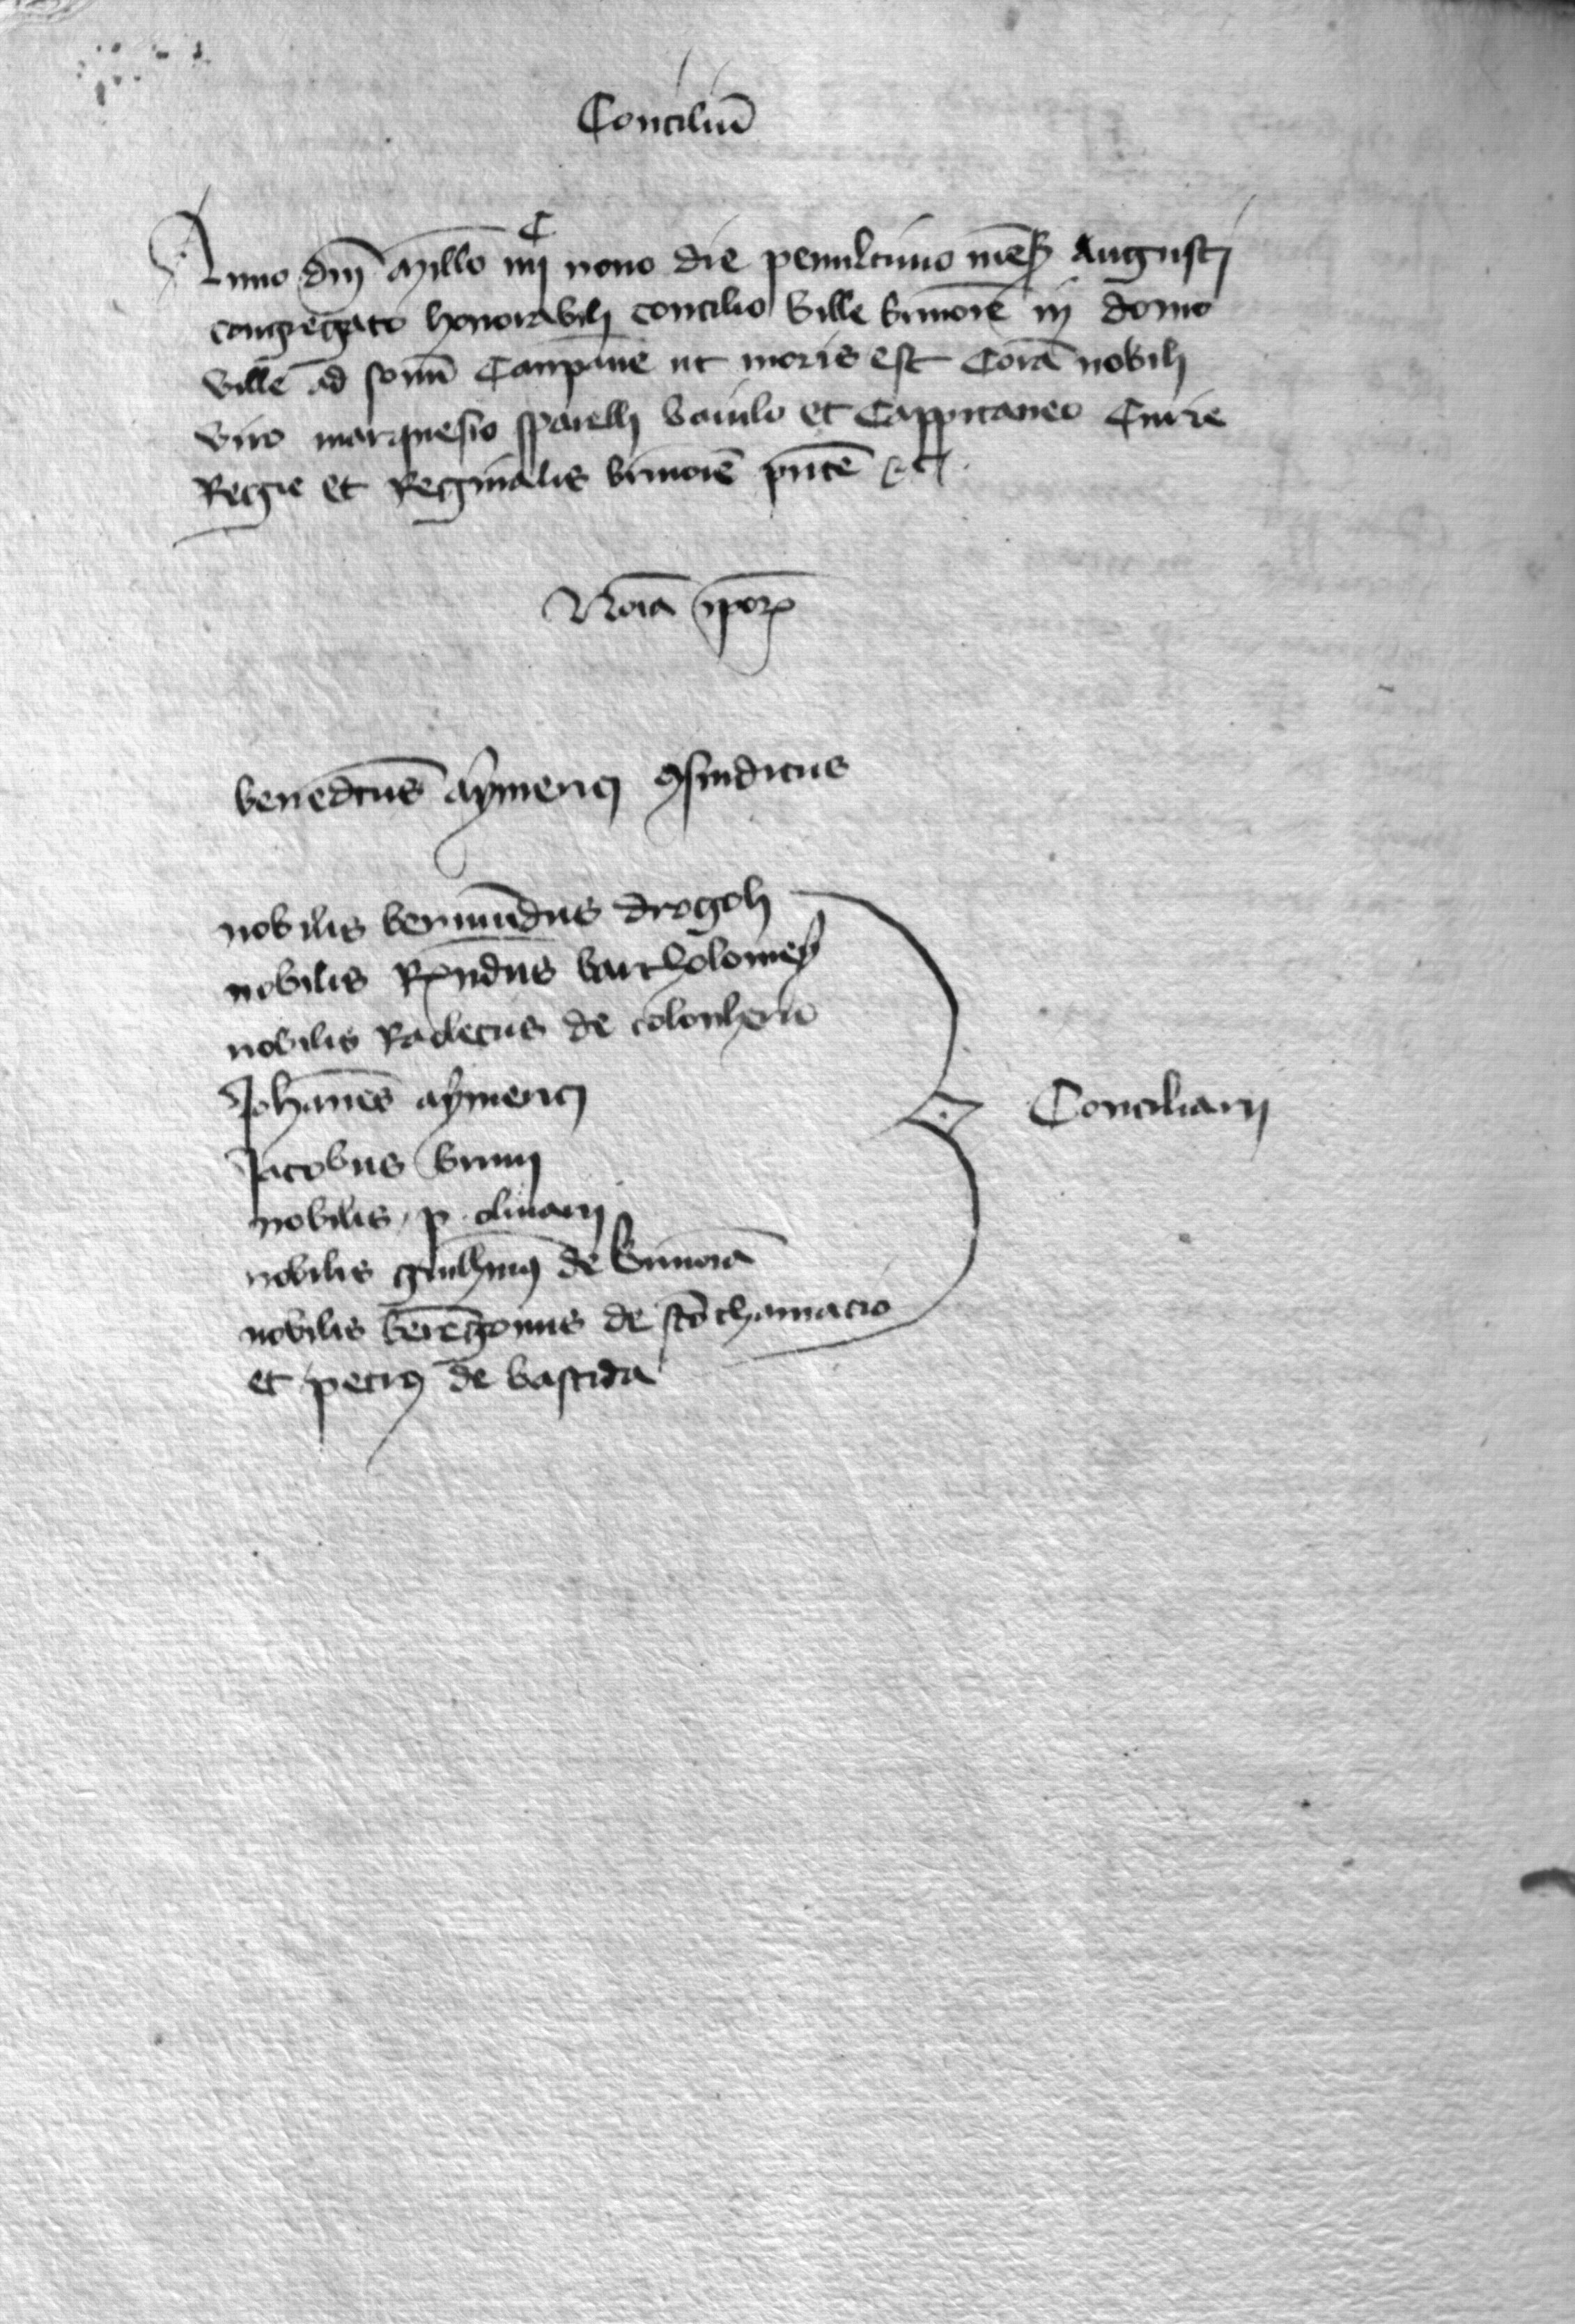 Conciliu̅
Anno dn̅i mill̅o iiijC nono die penultimo me̅s Augusti
congregato honorabili concilio ville brinon̅e in domo
ville ad sonu̅ Campane ut moris est Cora̅ nobili
viro marquesio sparelli baiulo et Cappitaneo Curie
Regie et Reginalis brinon̅e pn̅te etc
No̅ia ip̅or
benedc̅us aymerici ꝯsindicus
nobilis bermu̅dus drogoli
nobilis R̅ndus bartholomey
nobilis Raletus de colonherio
Joha̅nes aymerici
Jacobus bruni
nobilis p olivarij
nobilis guill̅mus de brinonia
nobilis bere̅g̅onus de sc̅o chamacio
et petrus de bastida
Conciliarij